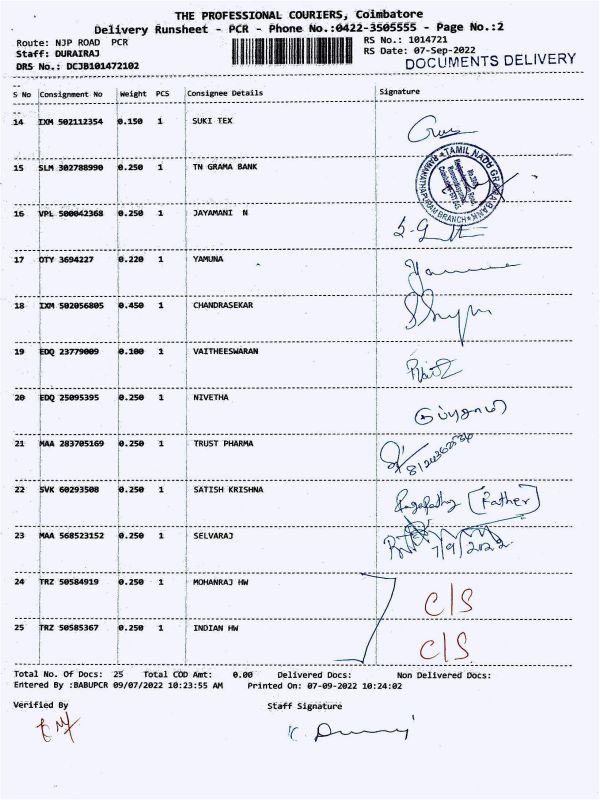 THE PROFESSIONAL COURIERS, Coimbatore
Delivery Runsheet - PCR - Phone No.:0422-3505555 - Page No.:2
Route: NJP ROAD PCR
RS No.: 1014721
Staff: DURAIRAJ
RS Date: 07-Sep-2022
DRS No.: DCJB101472102
DOCUMENTS DELIVERY
S No Consignment No Weight PCS Consignee Details Signature
14 IXM 502112354 0.150 1 SUKI TEX
15 SLM 302788990 0.250 1 TN GRAMA BANK
TAMIL NADU GRAMA BANK
RAMANATHAPURAM BRANCH
16 VPL 500042368 0.250 1 JAYAMANI N
17 OTY 3694227 0.220 1 YAMUNA
18 IXM 502056805 0.450 1 CHANDRASEKAR
19 EDQ 23779009 0.100 1 VAITHEESWARAN
20 EDQ 25095395 0.250 1 NIVETHA
21 MAA 283705169 0.250 1 TRUST PHARMA
22 SVK 60293508 0.250 1 SATISH KRISHNA
[Father]
23 MAA 568523152 0.250 1 SELVARAJ
7/9/2022
24 TRZ 50584919 0.250 1 MOHANRAJ HW C/S
25 TRZ 50585367 0.250 1 INDIAN HW C/S
Total No. Of Docs: 25 Total COD Amt: 0.00 Delivered Docs: Non Delivered Docs:
Entered By :BABUPCR 09/07/2022 10:23:55 AM Printed On: 07-09-2022 10:24:02
Verified By Staff Signature